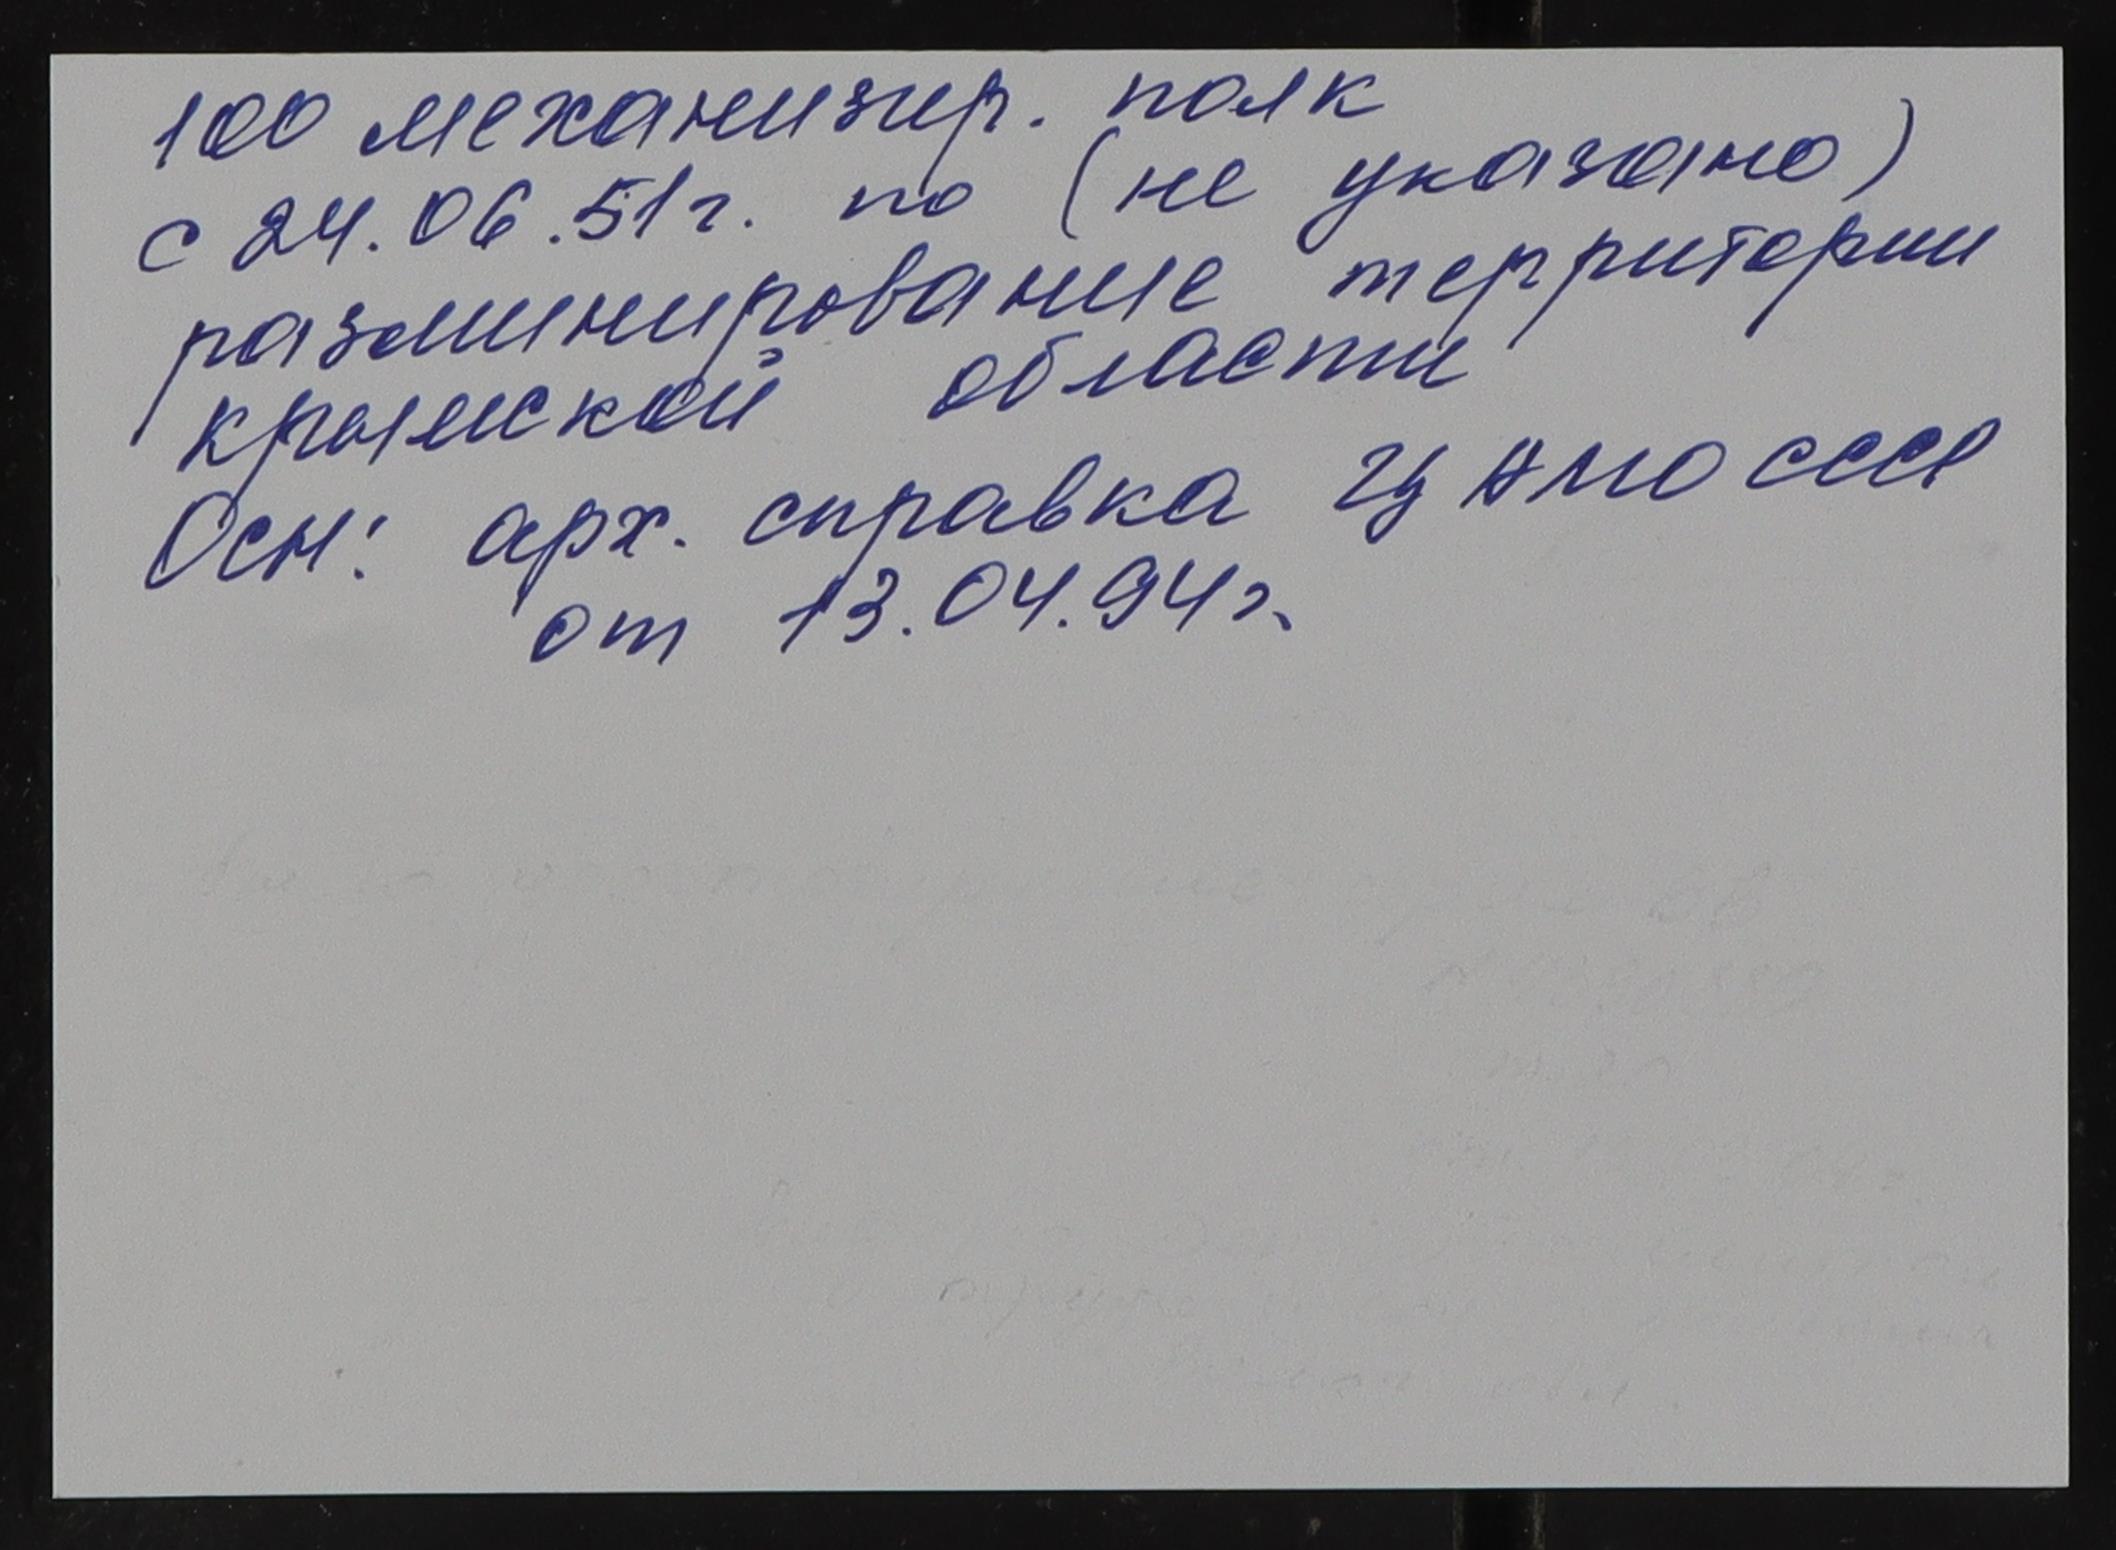 100 механизир. полк
с 24.06.51г. по (не указано)
разминирование территории
крымской области
Осн: арх. справка ЦАМО СССР
от 13.04.94г.